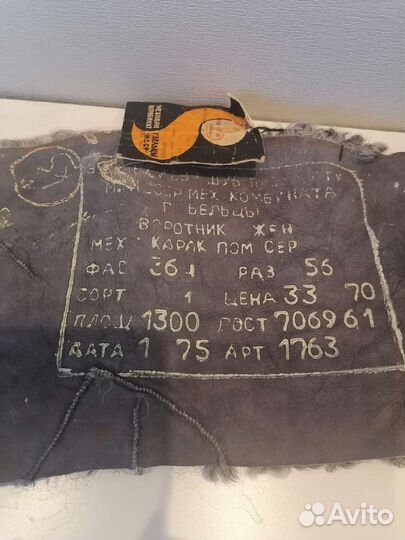 МЕХОВОЙ
КОМБИНАТ
Г БЕЛЬЦЫ
МССР
МЕХ КОМБИНАТА
Г БЕЛЬЦЫ
ВОРОТНИК ЖЕН
МЕХ КАРАК ПОМ СЕР
ФАС 361 РАЗ 56
СОРТ 1 ЦЕНА 33 70
ПЛОЩ 1300 ГОСТ 7069 61
ДАТА 1 75 АРТ 1763
Avito